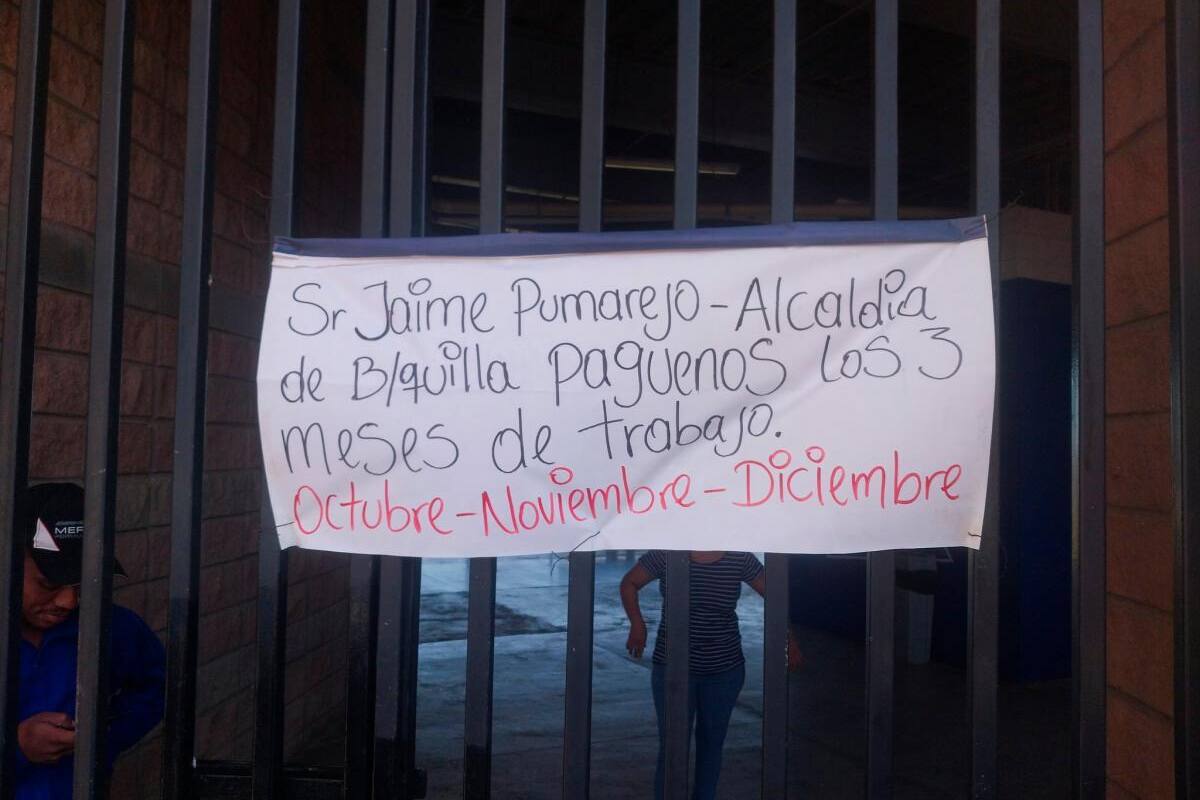 Sr Jaime Pumarejo - Alcaldia
de B/quilla paguenos los 3
meses de trabajo.
Octubre - Noviembre - Diciembre